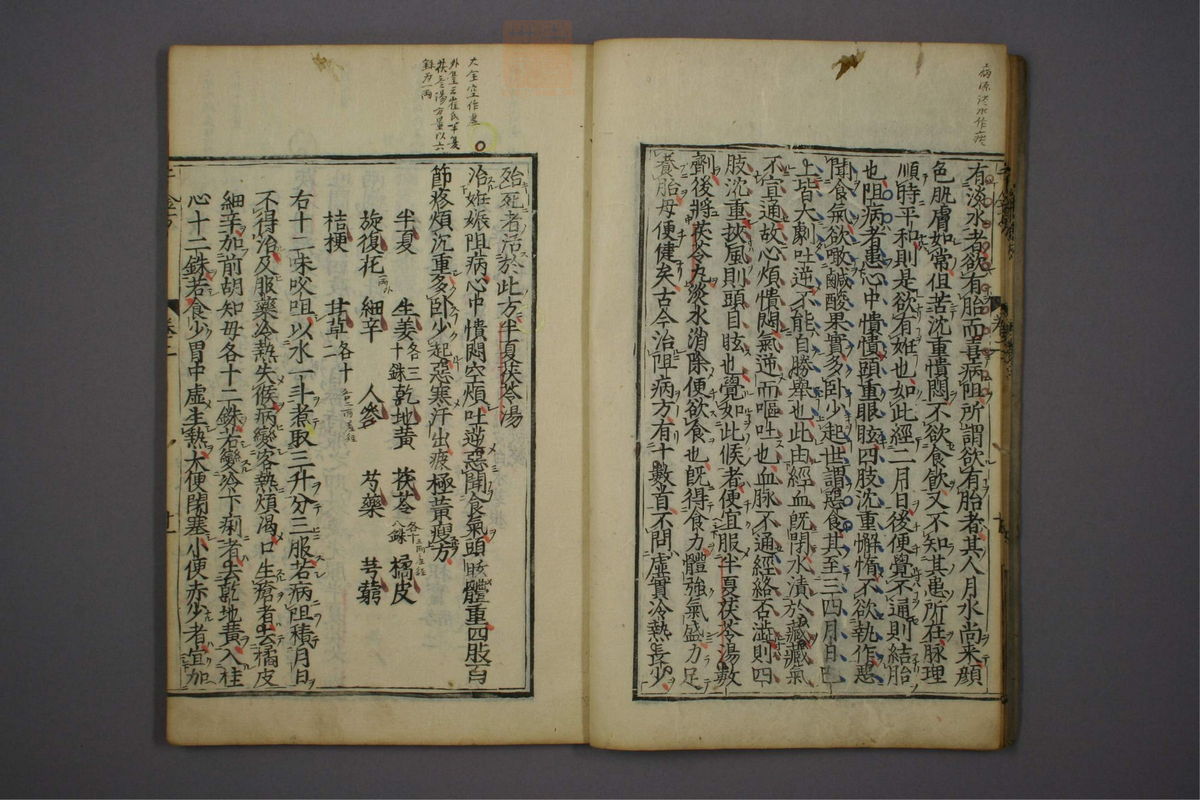 病源淡水作痰
有淡水者欲有胎而喜病阻所謂欲有胎者其人月水尚来顏
色肌膚如常但苦沈重憒悶不欲食飲又不知其患所在脉理
順時平和則是欲有娠也如此經二月日後便覺不通則結胎
也阻病者患心中憒憒頭重眼眩四肢沈重懈惰不欲執作惡
聞食氣欲噉鹹酸果實多卧少起世謂惡食其至三四月日已
上皆大劇吐逆不能自勝舉也此由經血既閉水漬於藏藏氣
不宣通故心煩憒悶氣逆而嘔吐也血脉不通經絡否澁則四
肢沈重挾風則頭目眩也覺如此候者便宜服半夏茯苓湯數
劑後將茯苓丸淡水消除便欲食也既得食力體強氣盛力足
養胎母便健矣古今治阻病方有十數首不問虛實冷熱長少
千金方 卷二
殆死者活於此方半夏茯苓湯
治妊娠阻病心中憒悶空煩吐逆惡聞食氣頭眩體重四肢百
節疼煩沉重多卧少起惡寒汗出疲極黃瘦方
半夏 生姜各三十銖 乾地黃 茯苓各十八銖 橘皮
旋復花 細辛 人參 芍藥 芎藭
桔梗 甘草各十二
右十二味㕮咀以水一斗煮取三升分三服若病阻積月日
不得治及服藥冷熱失候病變客熱煩渴口生瘡者去橘皮
細辛加前胡知母各十二銖若變冷下痢者去乾地黃入桂
心十二銖若食少胃中虛生熱大便閉塞小便赤少者宜加